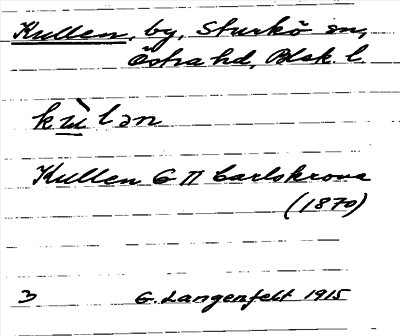 Kullen, by, Sturkö sn,
Östra hd, Blek. l
kùlən
Kullen G II Carlskrona
(1870)
3 G. Langenfelt 1915